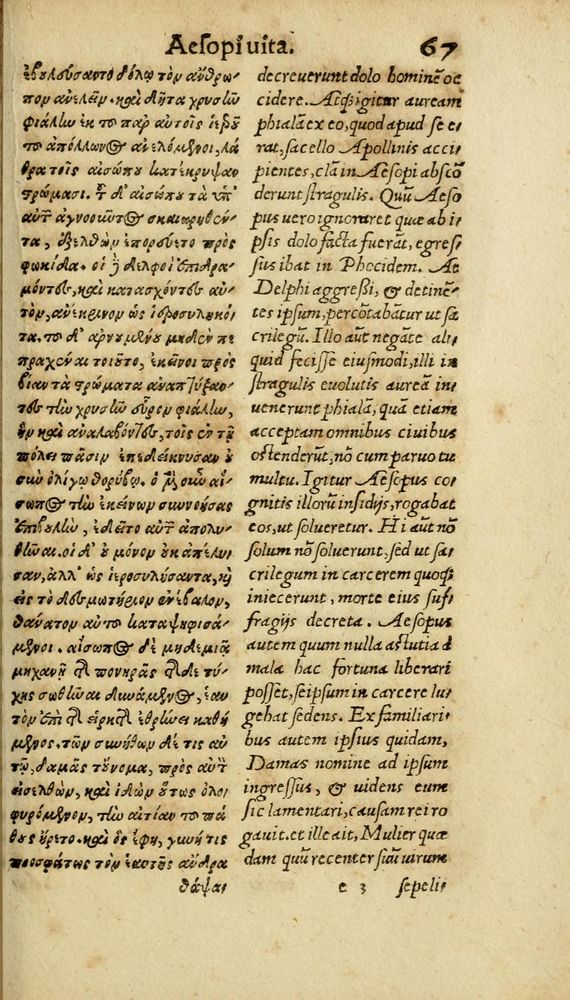 Aesopi uita. 67
ἐβουλεύσαντο δόλῳ τὸν ἄνθρω-
πον ἀνελεῖν. καὶ δῆτα χρυσῆν
φιάλην ἐκ τοῦ παρ' αὐτοῖς ἱεροῦ
τοῦ ἀπόλλωνος ἀνελόμενοι, λά-
θρα τοῖς αἰσώπου κατέκρυψαν
στρώμασι. τοῦ δ' αἰσώπου τὰ ὑπ'
αὐτῶν ἀγνοοῦντος σκαιωρηθέν-
τα, ἐξελθὼν ἐπορεύετο πρὸς
φωκίδα. οἱ δὲ δελφοὶ ἐπιδρα-
μόντες, καὶ κατασχόντες αὐ-
τὸν, ἀνέκρινον ὡς ἱεροσυληκό-
τα. τοῦ δ' ἀρνουμένου μηδὲν πε-
πραχέναι τοιοῦτο, ἐκεῖνοι πρὸς
βίαν τὰ στρώματα ἀναπτύξαν-
τες τὴν χρυσῆν εὗρον φιάλην,
ἣν καὶ ἀναλαβόντες, τοῖς ἐν τῇ
πόλει πᾶσιν ἐπεδείκνυσαν οὐ
σὺν ὀλίγῳ θορύβῳ. ὁ μὲν οὖν αἴ-
σωπος τὴν ἐκείνων συννοήσας
ἐπιβουλὴν, ἐδεῖτο αὐτῶν ἀπολυ-
θῆναι. οἱ δ' οὐ μόνον οὐκ ἀπέλυ-
σαν, ἀλλ' ὡς ἱεροσυλήσαντα, καὶ
εἰς τὸ δεσμωτήριον ἐνέβαλον,
θάνατον αὐτοῦ καταψηφισά-
μενοι. αἴσωπος δὲ μηδεμιᾷ
μηχανῇ τῆς πονηρᾶς τῆσδε τύ-
χης σωθῆναι δυνάμενος, ἑαυ-
τὸν ἐπὶ τῆς εἱρκτῆς ἐθρήνει καθή
μενος. τῶν συνήθων δέ τις αὐ
τοῦ, δαμᾶς τοὔνομα, πρὸς αὐτὸν
εἰσελθὼν, καὶ ἰδὼν οὕτως ὀλο-
φυρόμενον, τὴν αἰτίαν τοῦ πά
θους ἤρετο. καὶ ὃς ἔφη, γυνή τις
προσφάτως τὸν ἑαυτῆς ἄνδρα
θάψα-
decreuerunt dolo hominẽ oc
cidere. Acceptã igitur auream
phialã ex eo, quod apud se e-
rat, sacello Apollinis acci-
pientes, clã in Aesopi abscõ
derunt stragulis. Quũ Aeso
pus uero ignoraret quæ ab i-
psis dolo facta fuerãt, egres-
sus ibat in Phocidem. At
Delphi aggreßi, & detinẽ-
tes ipsum, percõtabãtur ut sa
crilegũ. Illo aũt negãte ali-
quid fecisse eiusmodi, illi in
stragulis euolutis aureã in-
uenerunt phialã, quã etiam
acceptam omnibus ciuibus
ostenderũt, nõ cum paruo tu
multu. Igitur Aesopus co-
gnitis illorũ insidijs, rogabat
eos, ut solueretur. Hi aũt nõ
solum nõ soluerunt, sed ut sa-
crilegum in carcerem quoq;
iniecerunt, morte eius suf-
fragijs decreta. Aesopus
autem quum nulla astutia à
mala hac fortuna liberari
posset, seipsum in carcere lu-
gebat sedens. Ex familiari-
bus autem ipsius quidam,
Damas nomine ad ipsum
ingressus, & uidens eum
sic lamentari, causam rei ro
gauit. et ille ait, Mulier quæ
dam quũ recenter suũ uirum
e 3 sepeli-